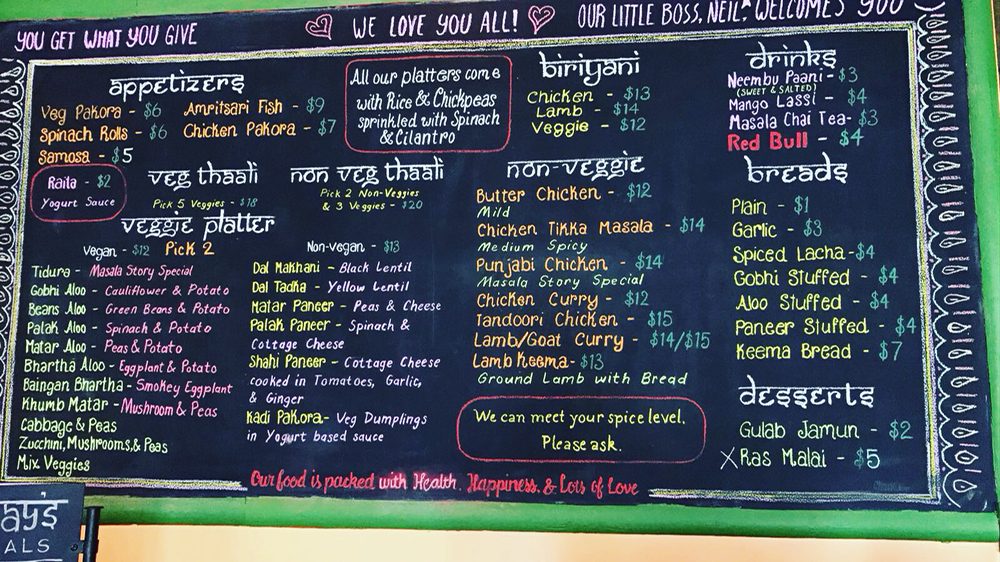 YOU GET WHAT YOU GIVE
WE LOVE YOU ALL!
OUR LITTLE BOSS, NEIL, WELCOMES YOU
APPETIZERS
Veg Pakora - $6
Amritsari Fish - $9
Spinach Rolls - $6
Chicken Pakora - $7
Samosa - $5
Raita - $2
Yogurt Sauce
All our platters come
with Rice & Chickpeas
sprinkled with Spinach
& Cilantro
VEG THAALI
Pick 5 Veggies - $18
NON VEG THAALI
Pick 2 Non-Veggies
& 3 Veggies - $20
VEGGIE PLATTER
Vegan - $12 Pick 2
Non-vegan - $13
Tidura - Masala Story Special
Gobhi Aloo - Cauliflower & Potato
Beans Aloo - Green Beans & Potato
Palak Aloo - Spinach & Potato
Matar Aloo - Peas & Potato
Bhartha Aloo - Eggplant & Potato
Baingan Bhartha - Smokey Eggplant
Khumb Matar - Mushroom & Peas
Cabbage & Peas
Zucchini, Mushrooms, & Peas
Mix Veggies
Dal Makhani - Black Lentil
Dal Tadka - Yellow Lentil
Matar Paneer - Peas & Cheese
Palak Paneer - Spinach &
Cottage Cheese
Shahi Paneer - Cottage Cheese
cooked in Tomatoes, Garlic,
& Ginger
Kadi Pakora - Veg Dumplings
in Yogurt based sauce
BIRIYANI
Chicken - $13
Lamb - $14
Veggie - $12
NON-VEGGIE
Butter Chicken - $12
Mild
Chicken Tikka Masala - $14
Medium Spicy
Punjabi Chicken - $14
Masala Story Special
Chicken Curry - $12
Tandoori Chicken - $15
Lamb/Goat Curry - $14/$15
Lamb Keema - $13
Ground Lamb with Bread
We can meet your spice level.
Please ask.
DRINKS
Neembu Paani - $3
(SWEET & SALTED)
Mango Lassi - $4
Masala Chai Tea - $3
Red Bull - $4
BREADS
Plain - $1
Garlic - $3
Spiced Lacha - $4
Gobhi Stuffed - $4
Aloo Stuffed - $4
Paneer Stuffed - $4
Keema Bread - $7
DESSERTS
Gulab Jamun - $2
X Ras Malai - $5
Our food is packed with Health, Happiness, & Lots of Love
AY'S
ALS